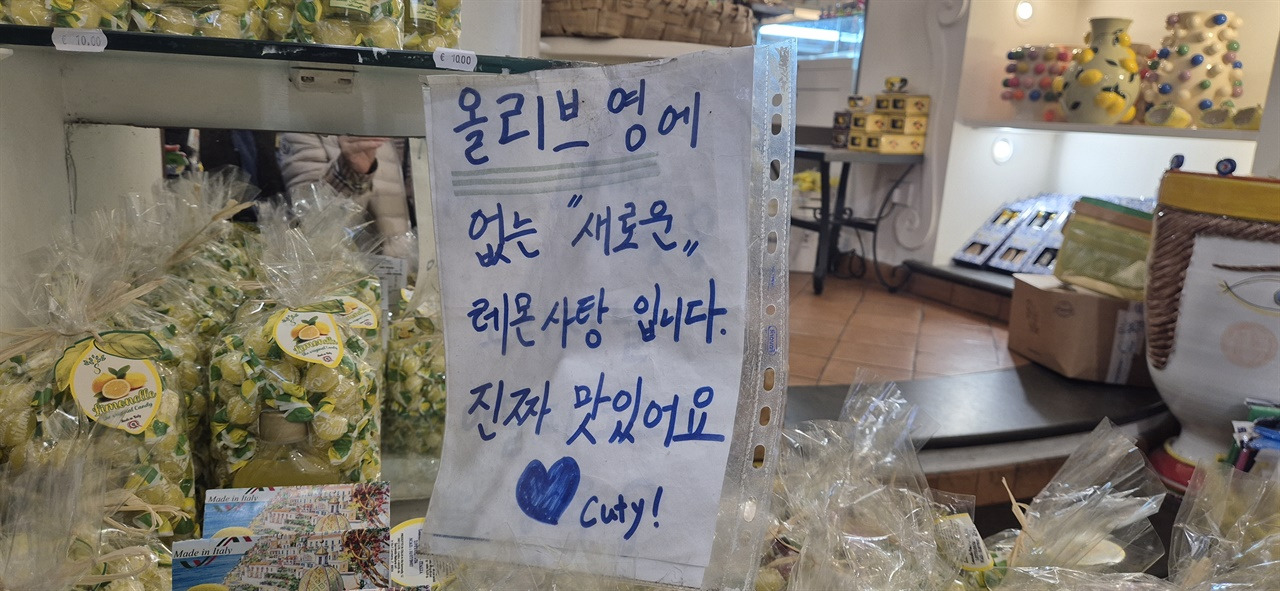 € 10.00
€ 10.00
올리브영에
없는 "새로운"
레몬사탕 입니다.
진짜 맛있어요
Cuty!
Limonello
Made in Italy
Made in Italy